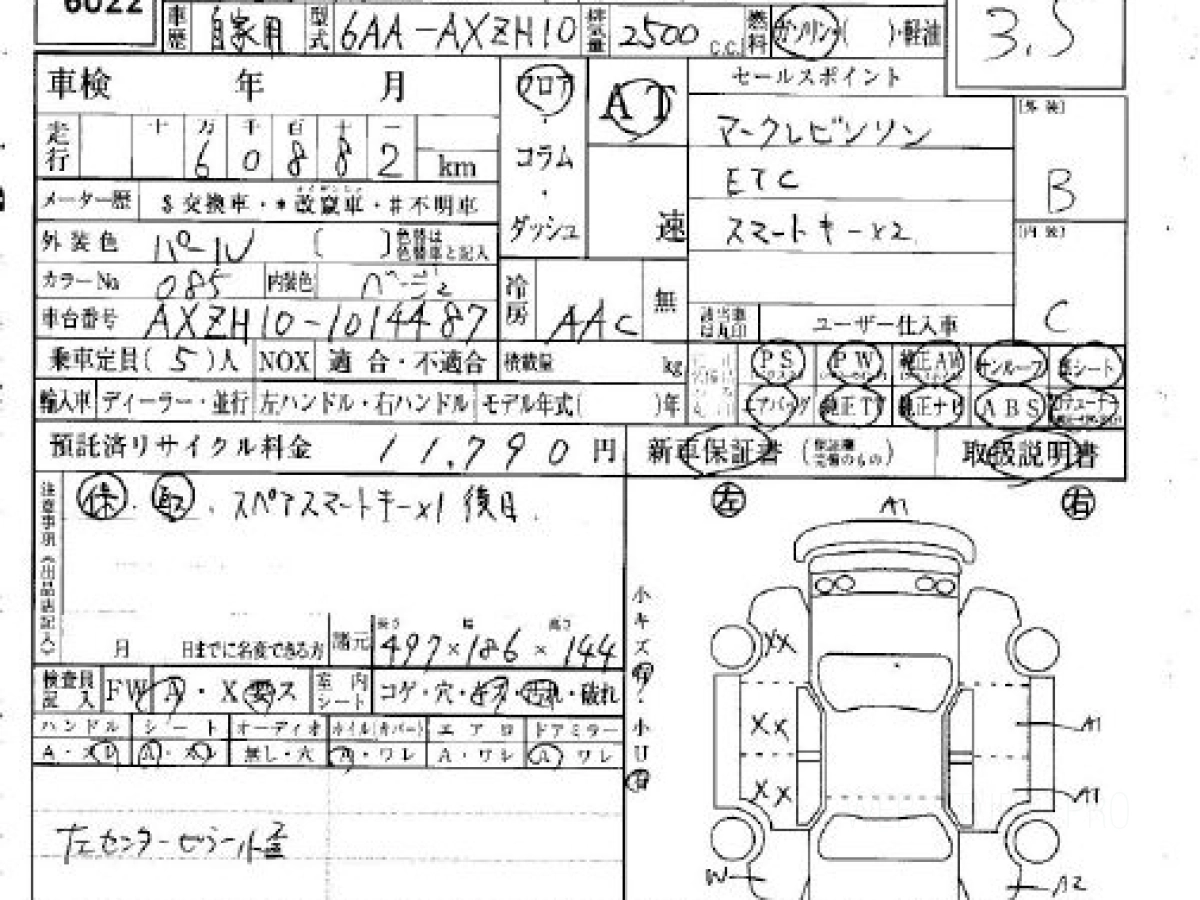 6022
車歴 自家用 型式 6AA-AXZH10 排気量 2500 C.C. 燃料 ガソリン( )・軽油
3.5
車検 年 月
フロア・コラム・ダッシュ
AT
速
セールスポイント
マークレビンソン
ETC
スマートキーx2
[外装]
B
[内装]
C
走行 十 万 千 百 十 一
6 0 8 8 2 km
メーター歴 $交換車・*改竄車・#不明車
外装色 パール ( ) 色替は色替車と記入
カラーNo 085 内装色 ベージュ
冷房 AAC 無
車台番号 AXZH10-1014487
該当車は丸印 ユーザー仕入車
乗車定員(5)人 NOX 適合・不適合 積載量 kg
PS PW 純正AW サンルーフ 革シート
輸入車 ディーラー・並行 左ハンドル・右ハンドル モデル年式( )年
エアバッグ 純正TV 純正ナビ ABS
預託済リサイクル料金 11,790円
新車保証書 (保証継完備のもの) 取扱説明書
注意事項(出品店記入)
保・取・スペアスマートキーx1 後日.
左 A1 右
月 日までに名変できる方
諸元 長さ 497 × 幅 186 × 高さ 144
小キズ有・小U有
検査員記入 FW A・X 要ス 室内シート コゲ・穴・キズ・汚れ・破れ
XX
ハンドル シート オーディオ ホイル(カバー) エアロ ドアミラー
A・スレ A・スレ 無し・穴 A・ワレ A・ワレ A ワレ
XX A1
XX A1
W A2